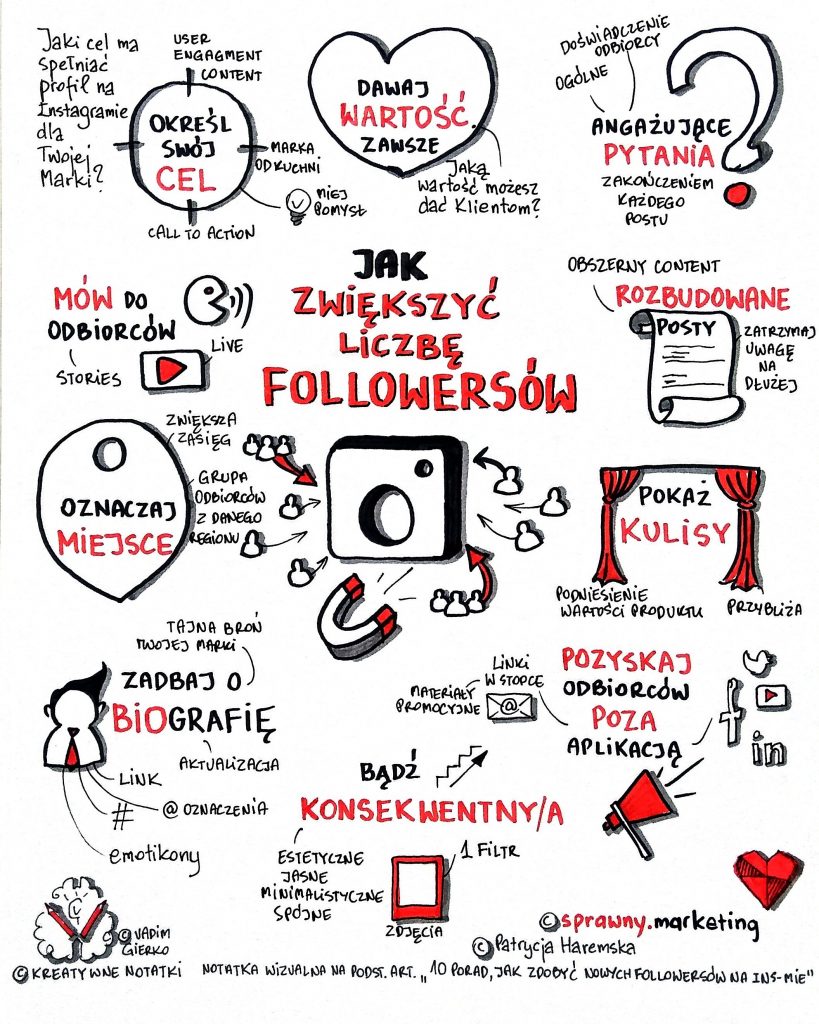 Jaki cel ma
spełniać
profil na
Instagramie
dla
Twojej
Marki?
USER
ENGAGMENT
CONTENT
OKREŚL
SWÓJ
CEL
MARKA
OD KUCHNI
MIEJ
POMYSŁ
CALL TO ACTION
DAWAJ
WARTOŚĆ
ZAWSZE
JAKĄ
WARTOŚĆ MOŻESZ
DAĆ KLIENTOM?
DOŚWIADCZENIE
ODBIORCY
OGÓLNE
ANGAŻUJĄCE
PYTANIA
ZAKOŃCZENIEM
KAŻDEGO
POSTU
JAK
ZWIĘKSZYĆ
LICZBĘ
FOLLOWERSÓW
MÓW DO
ODBIORCÓW
STORIES
LIVE
OBSZERNY CONTENT
ROZBUDOWANE
POSTY
ZATRZYMAJ
UWAGĘ
NA
DŁUŻEJ
ZWIĘKSZA
ZASIĘG
OZNACZAJ
MIEJSCE
GRUPA
ODBIORCÓW
Z DANEGO
REGIONU
POKAŻ
KULISY
PODNIESIENIE
WARTOŚCI PRODUKTU
PRZYBLIŻA
TAJNA BROŃ
TWOJEJ MARKI
ZADBAJ O
BIOGRAFIĘ
AKTUALIZACJA
LINK
#
@ OZNACZENIA
emotikony
LINKI
W STOPCE
MATERIAŁY
PROMOCYJNE
@
POZYSKAJ
ODBIORCÓW
POZA
APLIKACJĄ
f
in
BĄDŹ
KONSEKWENTNY/A
ESTETYCZNE
JASNE
MINIMALISTYCZNE
SPÓJNE
1 FILTR
ZDJĘCIA
© VADIM
GIERKO
© KREATYWNE NOTATKI
© sprawny.marketing
© Patrycja Haremska
NOTATKA WIZUALNA NA PODST. ART. „10 PORAD, JAK ZDOBYĆ NOWYCH FOLLOWERSÓW NA INS-MIE"